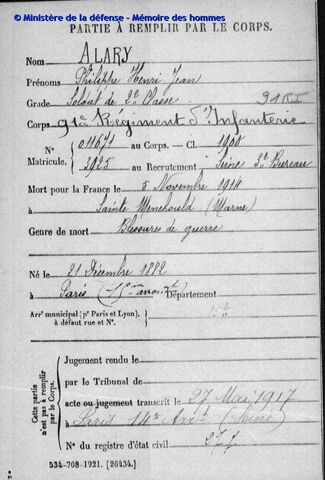 © Ministère de la défense - Mémoire des hommes
PARTIE À REMPLIR PAR LE CORPS.
Nom ALARY
Prénoms Philippe Henri Jean
Grade Soldat de 2e Classe 91 R.I
Corps 91e Régiment d'Infanterie
N° 011671 au Corps. — Cl. 1900
Matricule. 3925 au Recrutement Seine 3e Bureau
Mort pour la France le 5 Novembre 1914
à Sainte Menehould (Marne)
Genre de mort Blessures de guerre
Né le 21 Décembre 1882
à Paris Département
Arrt municipal (pr Paris et Lyon),
à défaut rue et N°.
Cette partie
n'est pas à remplir
par le Corps.
Jugement rendu le
par le Tribunal de
acte ou jugement transcrit le 27 Mai 1917
à Paris 14e Arrt (Seine)
N° du registre d'état civil
534-708-1921. [26434.]